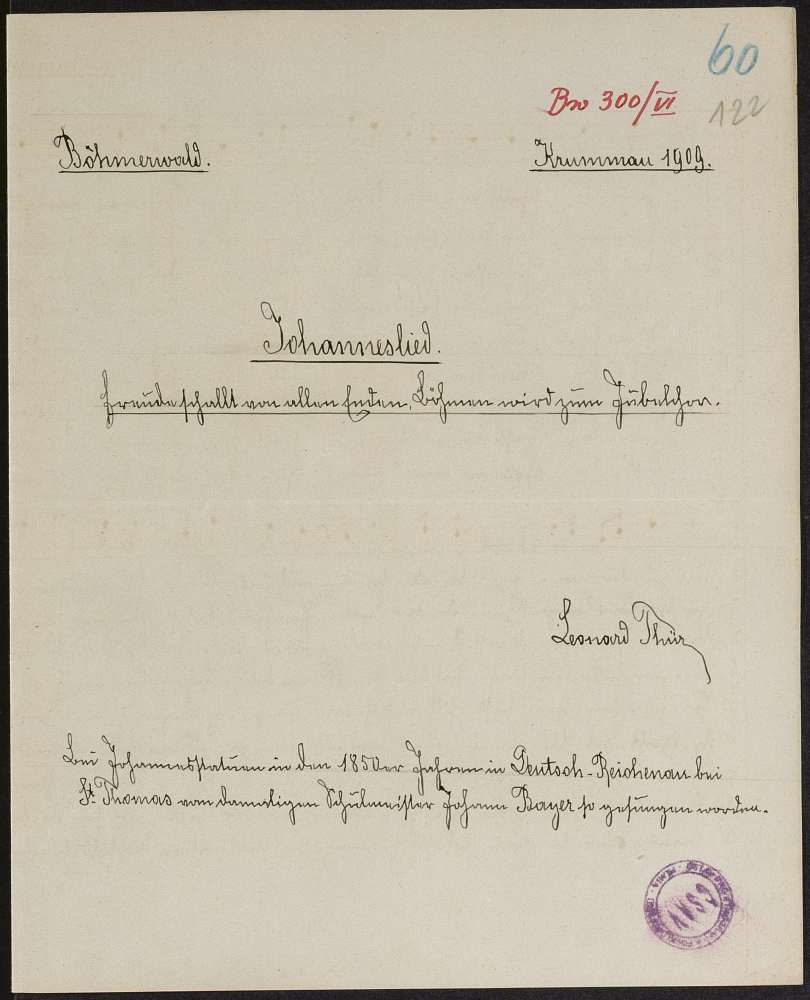 60
Bw 300/VI
122
Böhmerwald.
Krummau 1909.
Johanneslied.
Freude schallt von allen Enden, Böhmen wird zum Jubelchor.
Leonard Thür
Bei Johannesstatuen in den 1850er Jahren in Deutsch-Reichenau bei
St. Thomas vom damaligen Schulmeister Johann Bayer so gesungen worden.
ČSAV